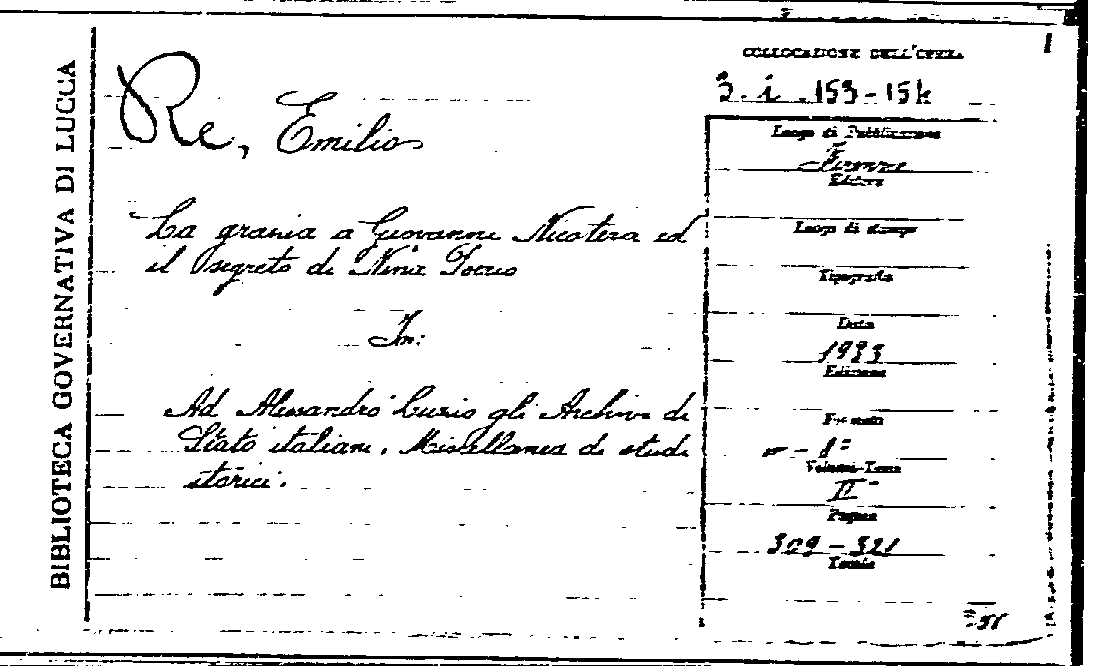 BIBLIOTECA GOVERNATIVA DI LUCCA
COLLOCAZIONE DELL'OPERA
3. i. 153-154
Re, Emilio
La grazia a Giovanni Nicotera ed
il segreto di Nina
In:
Ad Alessandro Luzio gli Archivi di
Stato italiani. Miscellanea di studi
storici.
Luogo di Pubblicazione
Firenze
Editore
Luogo di stampa
Tipografia
Data
1933
Edizione
Formato
- 8º
Volumi-Tomo
II
Pagine
309-321
Tavole